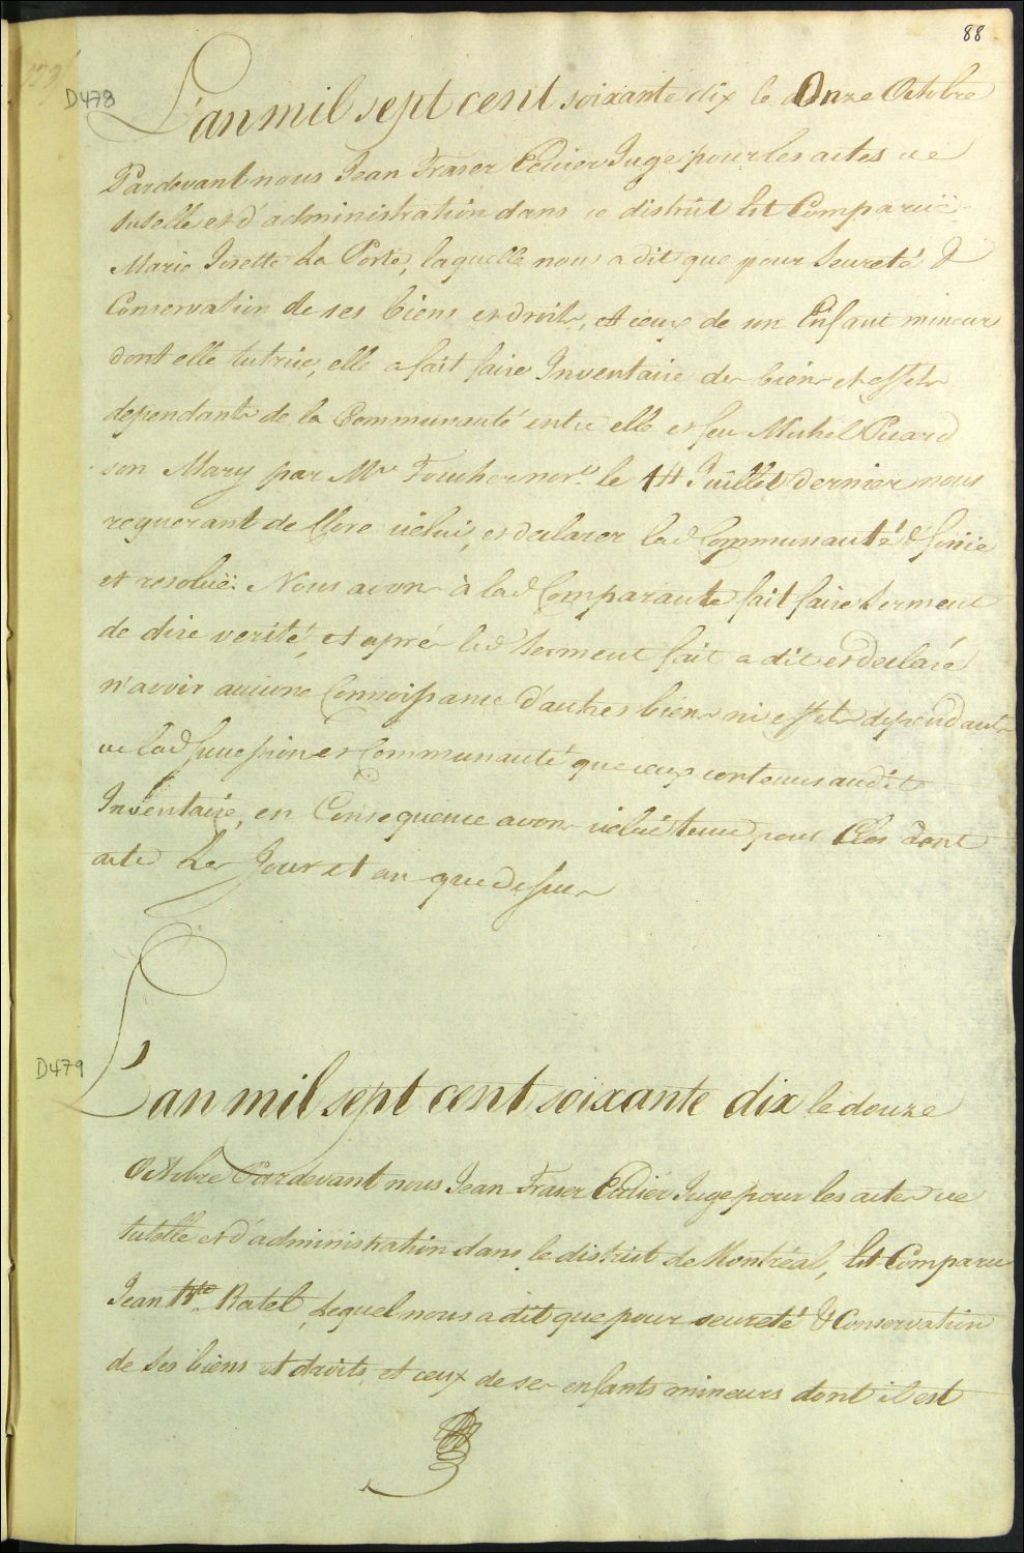 88
D478
L'an mil sept cent soixante dix le Onze Octobre
Pardevant nous Jean Fraser Ecuier Juge pour les actes de
tutelle et d'administration dans ce district Est Comparuë
Marie Josette La Porte, laquelle nous a dit que pour Seureté &
Conservation de ses biens et droits, et ceux de son Enfant mineur
dont elle tutrice, elle a fait faire Inventaire des biens et effets
dependants de la Communauté entre elle et feu Michel Picard
son Mary par Mre Foucher nore. le 14 Juillet dernier nous
requerant de Clore icelui, et declarer lad Communauté finie
et resoluë. Nous avons à lad Comparante fait faire Serment
de dire verité, et aprés led Serment fait a dit et declaré
n'avoir aucune Connoissance d'autres biens ni effets dependants
de lad Succession et Communauté que ceux contenus audit
Inventaire, en Consequence avons icelui tenu pour Clos dont
acte Les Jour et an que dessus
D479
L'an mil sept cent soixante dix le douze
Octobre Pardevant nous Jean Fraser Ecuier Juge pour les actes de
tutelle et d'administration dans le district de Montréal, Est Comparu
Jean Bte. Ratel, Lequel nous a dit que pour seureté & Conservation
de Ses biens et droits, et ceux de ses enfants mineurs dont il est